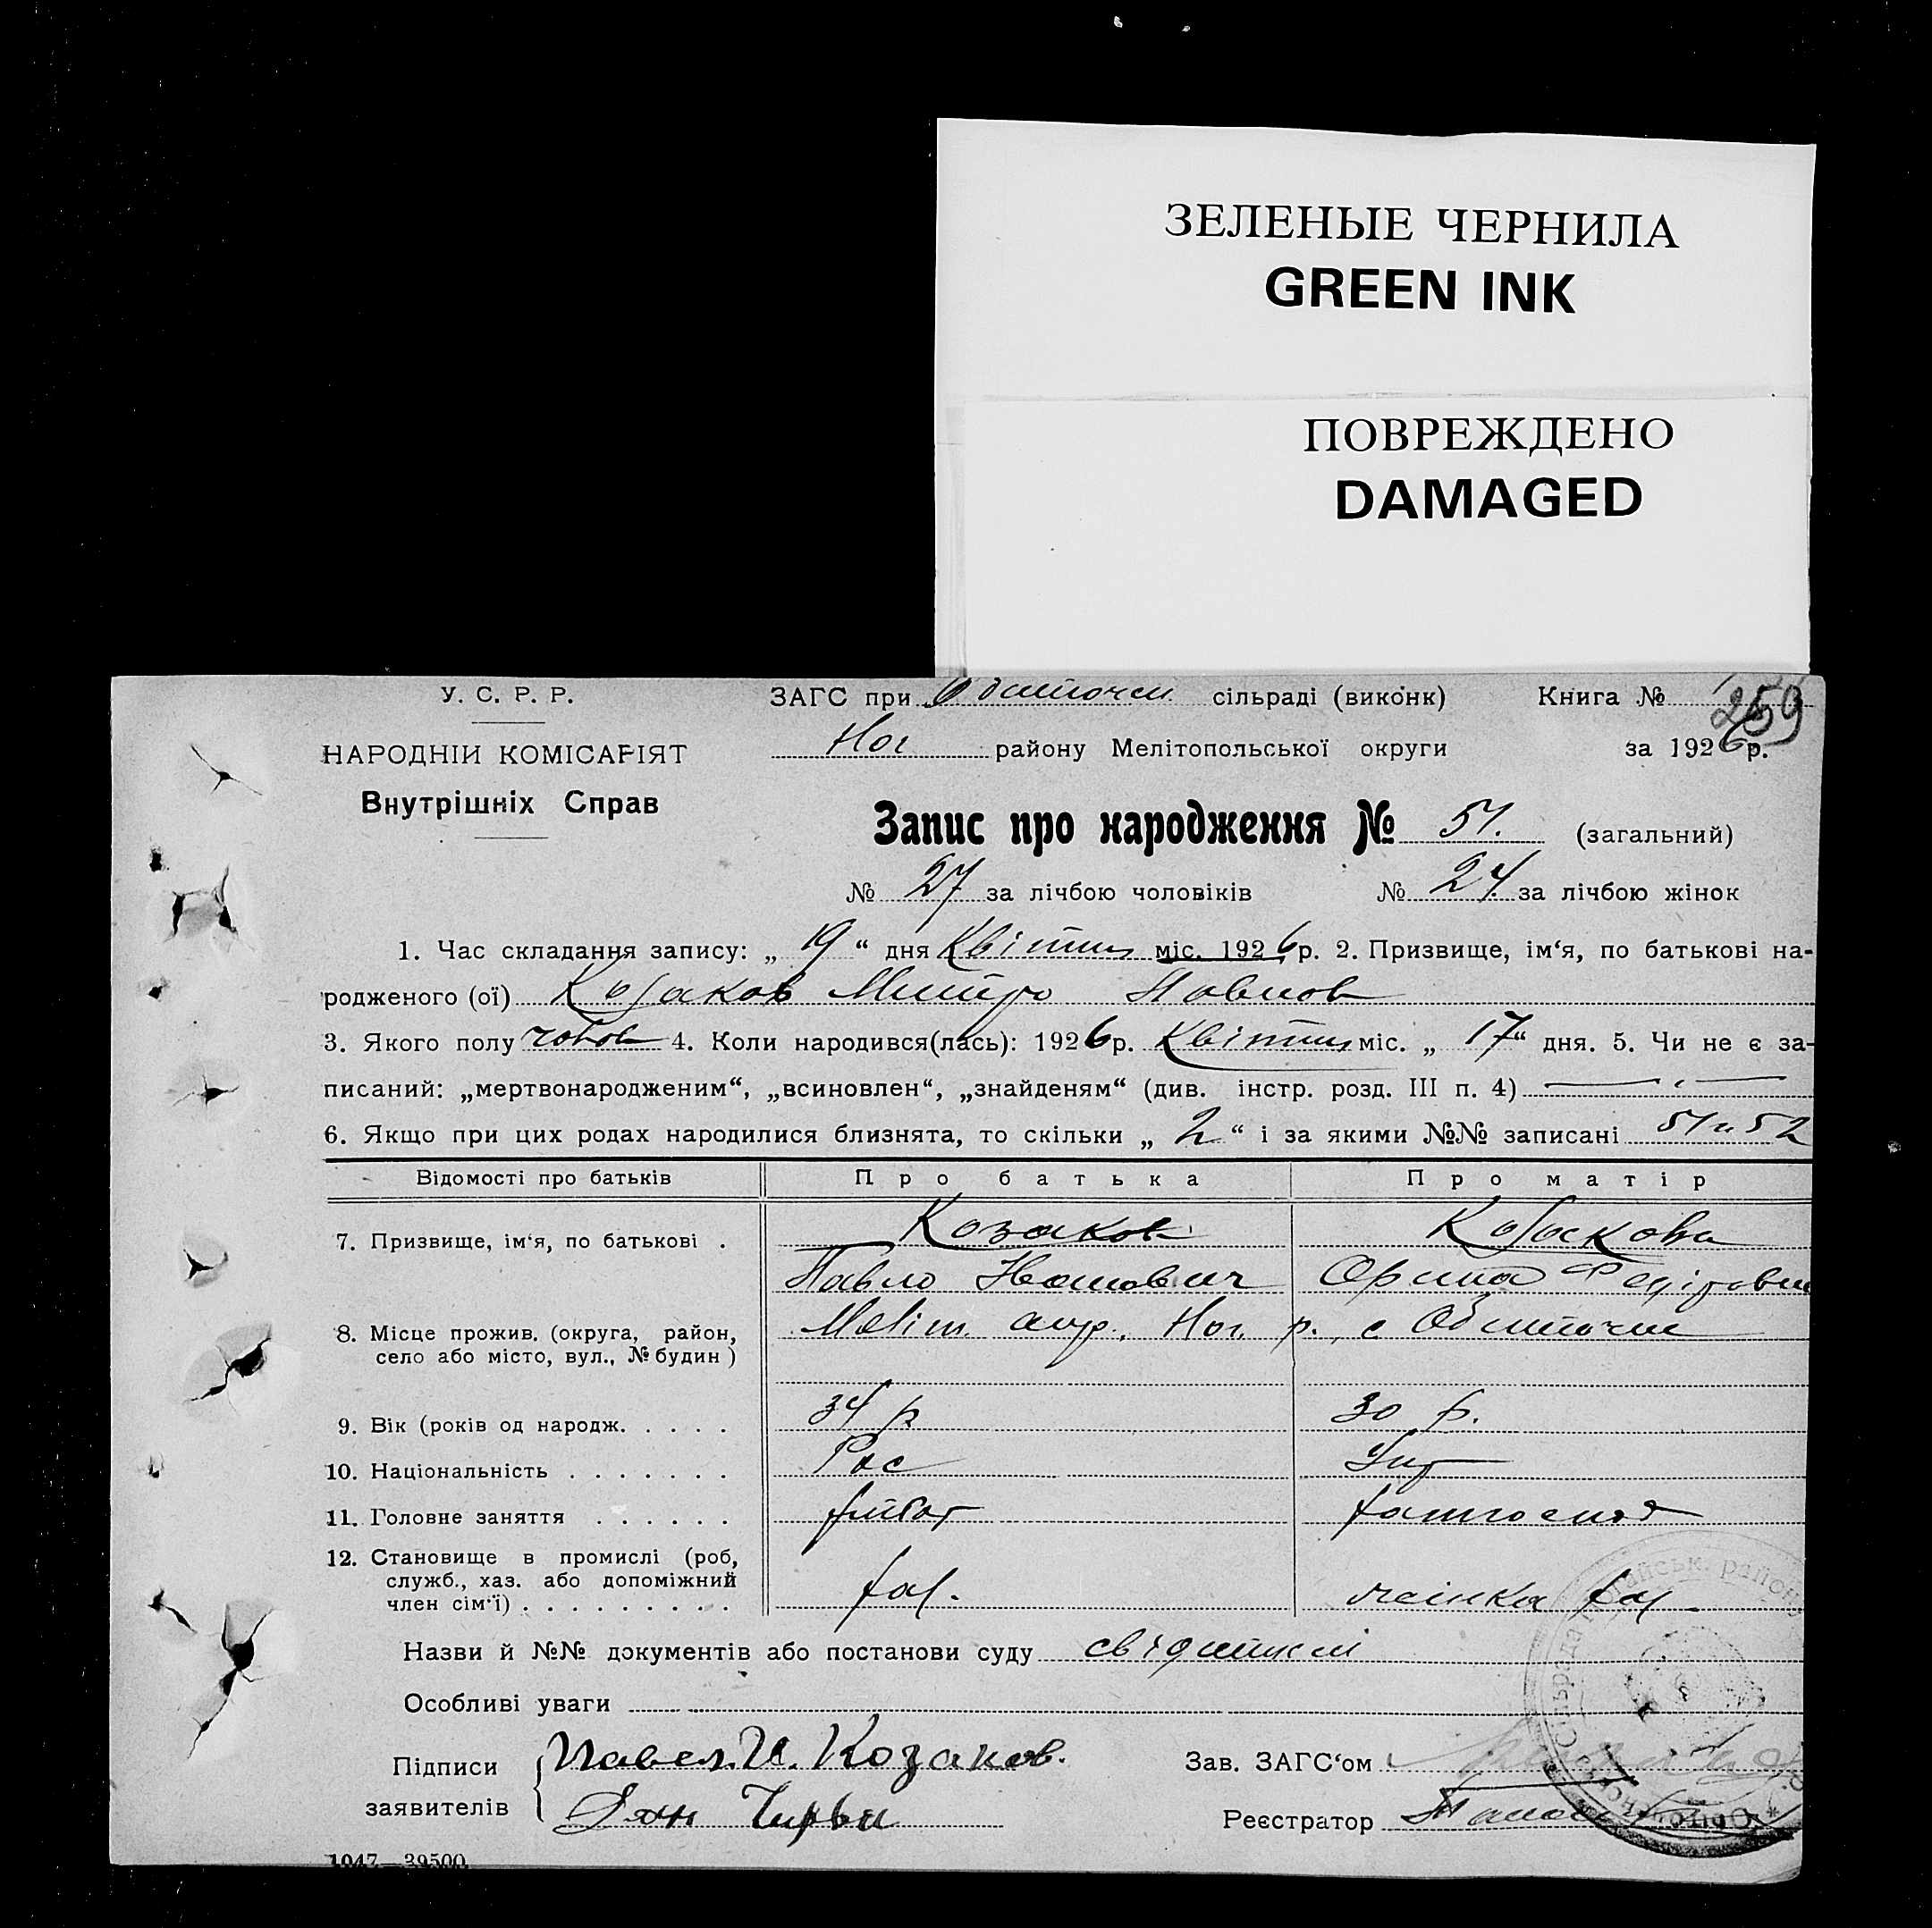 ЗЕЛЕНЫЕ ЧЕРНИЛА
GREEN INK
ПОВРЕЖДЕНО
DAMAGED
У. С. Р. Р.
НАРОДНІЙ КОМІСАРІЯТ
Внутрішніх Справ
ЗАГС при Обиточен. сільраді (виконк) Книга №
259
Ног району Мелітопольської округи за 1926 р.
Запис про народження № 51. (загальний)
№ 27 за лічбою чоловіків № 24. за лічбою жінок
1. Час складання запису: „ 19 “ дня Квітня міс. 1926 р. 2. Призвище, ім‘я, по батькові на-
родженого (ої) Козаков Митро Павлов
3. Якого полу чолов 4. Коли народився(лась): 1926 р. Квітня міс. „ 17 “ дня. 5. Чи не є за-
писаний: „мертвонародженим“, „всиновлен“, „знайденям“ (див. інстр. розд. III п. 4)
6. Якщо при цих родах народилися близнята, то скільки „ 2 “ і за якими №№ записані 51 и 52
Відомості про батьків Про батька Про матір
7. Призвище, ім‘я, по батькові . Козаков Козакова
Павло Іванович Орина Федіровна
8. Місце прожив. (округа, район, Меліт. окр., Ног. р., с Обиточне
село або місто, вул., № будин )
9. Вік (років од народж. . . . . 34 р 30 р.
10. Національність . . . . . . . Рос Укр
11. Головне заняття . . . . . .
12. Становище в промислі (роб,
служб., хаз. або допоміжний
член сім‘ї) . . . . . . . . . хаз. членка хаз.
Назви й №№ документів або постанови суду свідитилі
Особливі уваги
Підписи Павел. И. Козаков.
заявителів
Зав. ЗАГС‘ом
Реєстратор
1047—39500.